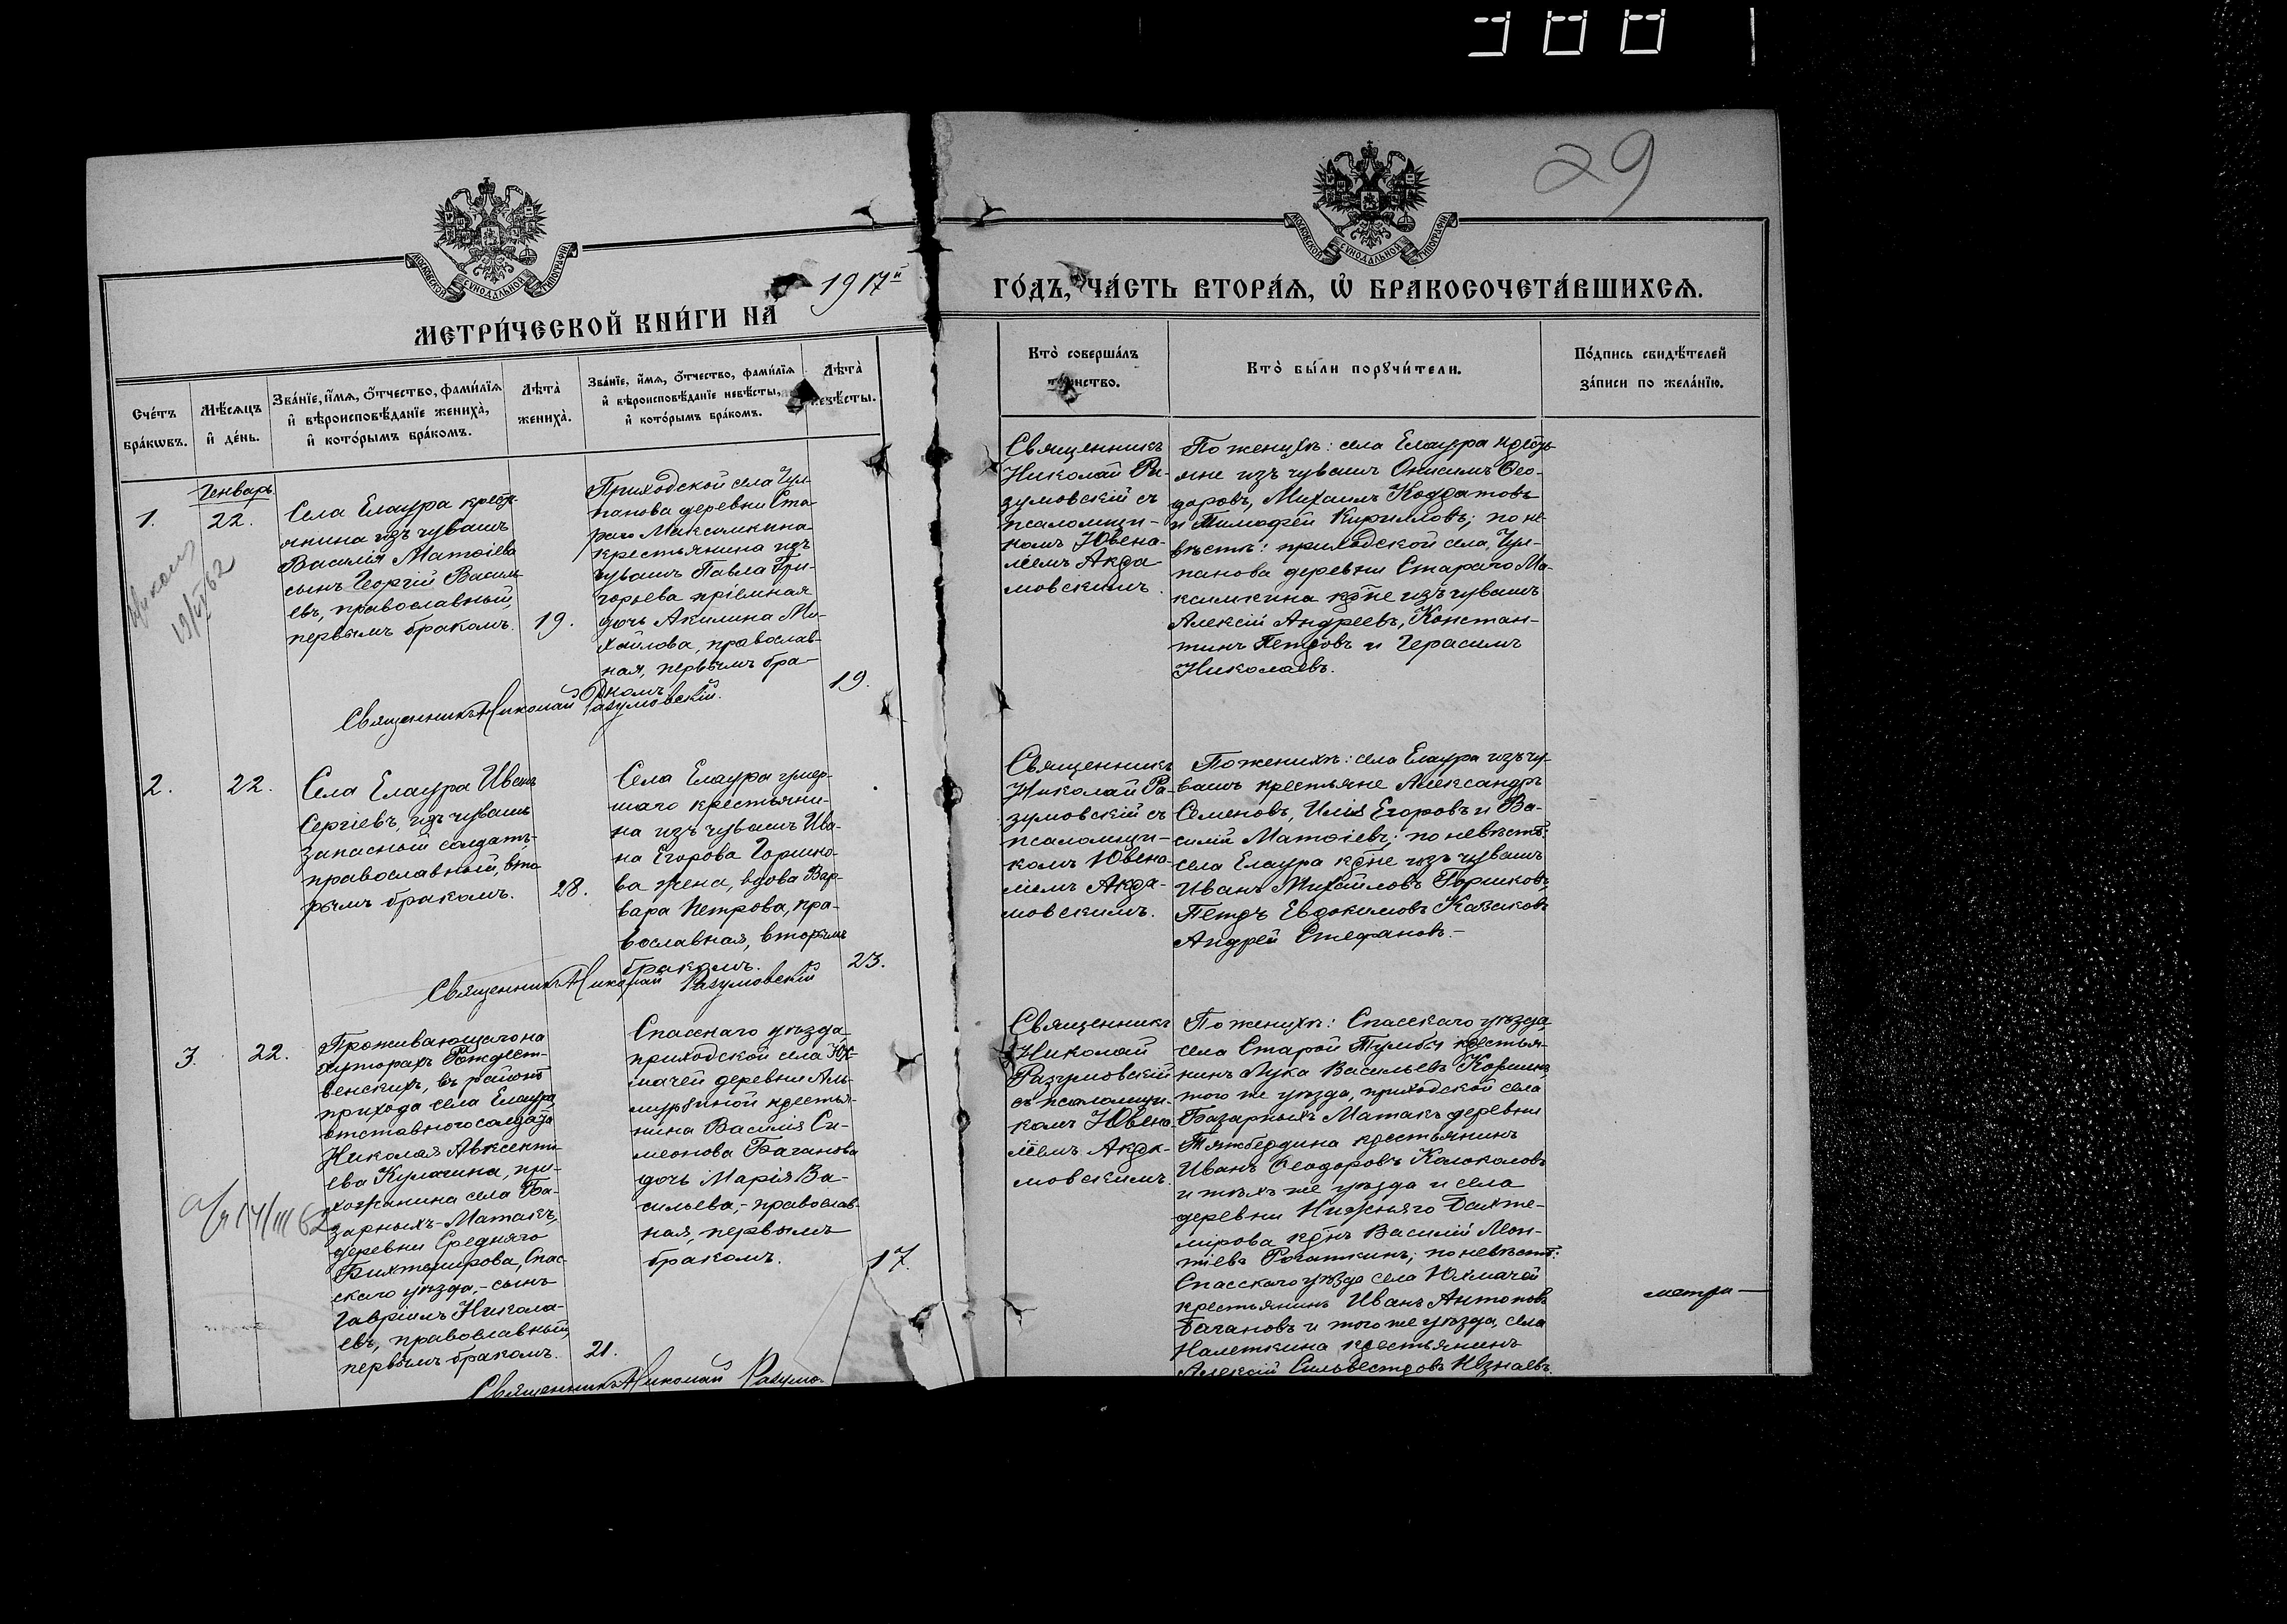 29
МОСКОВСКОЙ СѴНОДАЛЬНОЙ ТИПОГРАФІИ
МОСКОВСКОЙ СѴНОДАЛЬНОЙ ТИПОГРАФІИ
МЕТРИ́ЧЕСКОЙ КНИ́ГИ НА 1917й
ГО́ДЪ, ЧА́СТЬ ВТОРА́Ѧ, Ѽ БРАКОСОЧЕТА́ВШИХСѦ.
Сче́тъ
бра́кѡвъ.
Мѣ́сѧцъ
и҆ де́нь.
Зва́нїе, и҆́мѧ, ѻ҆́тчество, фами́лїѧ
и҆ вѣроисповѣ́данїе жениха̀,
и҆ кото́рымъ бра́комъ.
Лѣта̀
жениха̀.
Зва́нїе, и҆́мѧ, ѻ҆́тчество, фами́лїѧ
и҆ вѣроисповѣ́данїе невѣ́сты,
и҆ кото́рымъ бра́комъ.
Лѣта̀
невѣ́сты.
Кто̀ соверша́лъ
таинство.
Кто̀ бы́ли порꙋчи́тели.
По́дпись свидѣ́телей
за́писи по жела́нїю.
Генварь
1.
22.
Села Елаура кресть-
янина изъ чувашъ
Василія Матѳіева
сынъ Георгій Василь-
евъ, православный,
первымъ бракомъ.
19.
Приходской села Чул-
панова деревни Ста-
раго Максимкина
крестьянина изъ
чувашъ Павла Гри-
горьева пріемная
дочь Акилина Ми-
хайлова, православ-
ная, первымъ бра-
комъ.
19.
Священникъ Николай Разумовскій.
Священникъ
Николай Ра-
зумовскій съ
псаломщи-
комъ Ювена-
ліемъ Акра
мовскимъ.
По женихѣ: села Елаура кресть-
яне изъ чувашъ Онисимъ Ѳео-
доровъ, Михаилъ
и Тимофей Кирилловъ; по не-
вѣстѣ: приходской села Чул-
панова деревни Стараго Ма-
ксимкина кр-не изъ чувашъ
Алексій Андреевъ, Констан-
тинъ Петровъ и Герасимъ
Николаевъ.
19/VI 62
2.
22.
Села Елаура Иванъ
Сергіевъ, изъ чувашъ
запасный солдатъ
православный, вто
рымъ бракомъ.
28.
Села Елаура умер-
шаго крестьяни-
на изъ чувашъ Ива-
на Егорова Горшко-
ва жена, вдова Вар-
вара Петрова, пра-
вославная, вторымъ
бракомъ.
23.
Священникъ Николай Разумовскій
Священникъ
Николай Ра-
зумовскій съ
псаломщи-
комъ Ювена-
ліемъ Акра-
мовскимъ.
По женихѣ: села Елаура изъ чу-
вашъ крестьяне Александръ
Семеновъ, Илія Егоровъ и Ва-
силій Матѳіевъ; по невѣстѣ:
села Елаура кр-не изъ чувашъ
Иванъ Михайловъ Горшковъ,
Петръ Евдокимовъ Казаковъ
Андрей Стефановъ.-
3.
22.
Проживающаго на
хуторахъ Рождест-
венскихъ, въ районѣ
прихода села Елаура,
отставного солдата
Николая Авксенти-
ева Кулагина, при-
хожанина села Ба-
зарныхъ-Матакъ,
деревни Средняго
Бихтемирова, Спас-
скаго уѣзда,- сынъ
Гавріилъ Никола-
евъ, православный,
первымъ бракомъ.
21.
Спасскаго уѣзда,
приходской села Юх-
мачей деревни Аль-
мурзиной крестья-
нина Василія Си-
меонова Баганова
дочь Марія Ва-
сильева,- православ-
ная, первымъ
бракомъ.
17.
14/III 62
Священникъ Николай Разумо-
Священникъ
Николай
Разумовскій
съ псаломщи-
комъ Ювена-
ліемъ Акра-
мовскимъ.
По женихѣ: Спасскаго уѣзда,
села Старой Тумбы крестья-
нинъ Лука Васильевъ
того же уѣзда, приходской села
Базарныхъ Матакъ деревни
Тяжбердина крестьянинъ
Иванъ Ѳеодоровъ Колоколовъ
и тѣхъ же уѣзда и села
деревни Нижняго Бихте-
мирова кр-нъ Василій Леон-
тіевъ Рогаткинъ; по невѣстѣ:
Спасскаго уѣзда села Юхмачей
крестьянинъ Иванъ Антоновъ
Багановъ и того же уѣзда, села
Налеткина крестьянинъ
Алексій Сильвестровъ
метри-